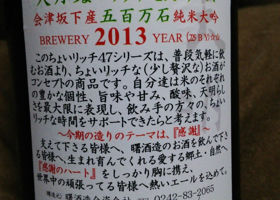 会津坂下産五百万石純米大吟
BREWERY 2013 YEAR (25 B Y)
このちょいリッチ47シリーズは、普段気軽に飲
むお酒より、ちょいリッチな(少し贅沢な)お酒が
コンセプトの商品です。自分達は米のそれぞれ
の豊かな個性、旨味や甘み、酸味、天明らし
さを最大限に表現し、飲み手の方々の、ちょいリ
ッチな時間をサポートできたらと考えます。
~今期の造りのテーマは、『感謝』~
支えて下さる皆様へ、曙酒造のお酒を飲んで下さ
る皆様へ、生まれ育んでくれる愛する郷土・自然へ
『感謝のハート』をしっかり胸に携え、
世界中の頑張ってる皆様へ、熱いエールを込めて。
0242-83-2065